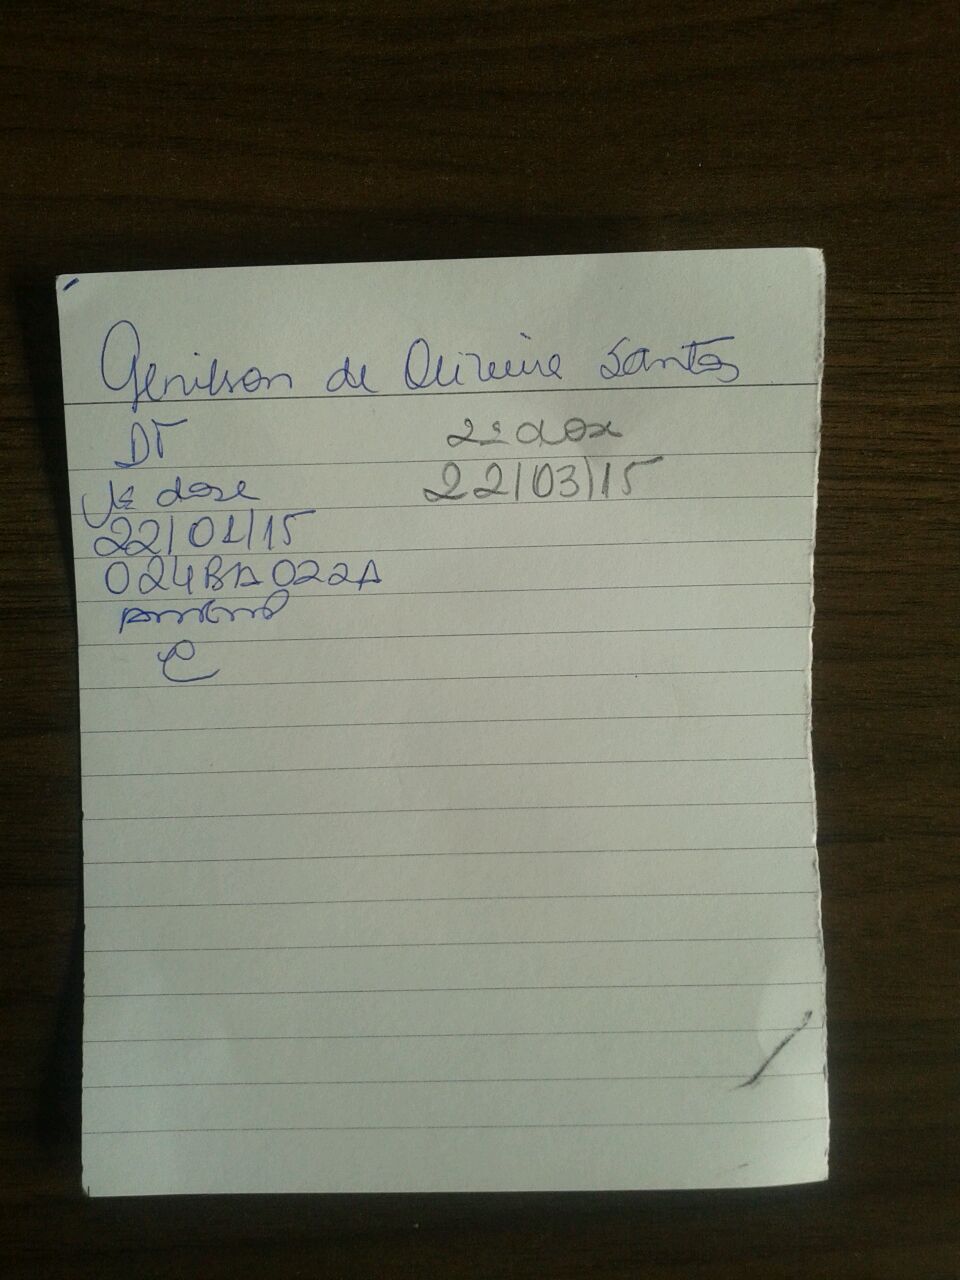 Genilson de Oliveira Santos
DT
1ª dose
22/01/15
024BA022A
2ª dose
22/03/15